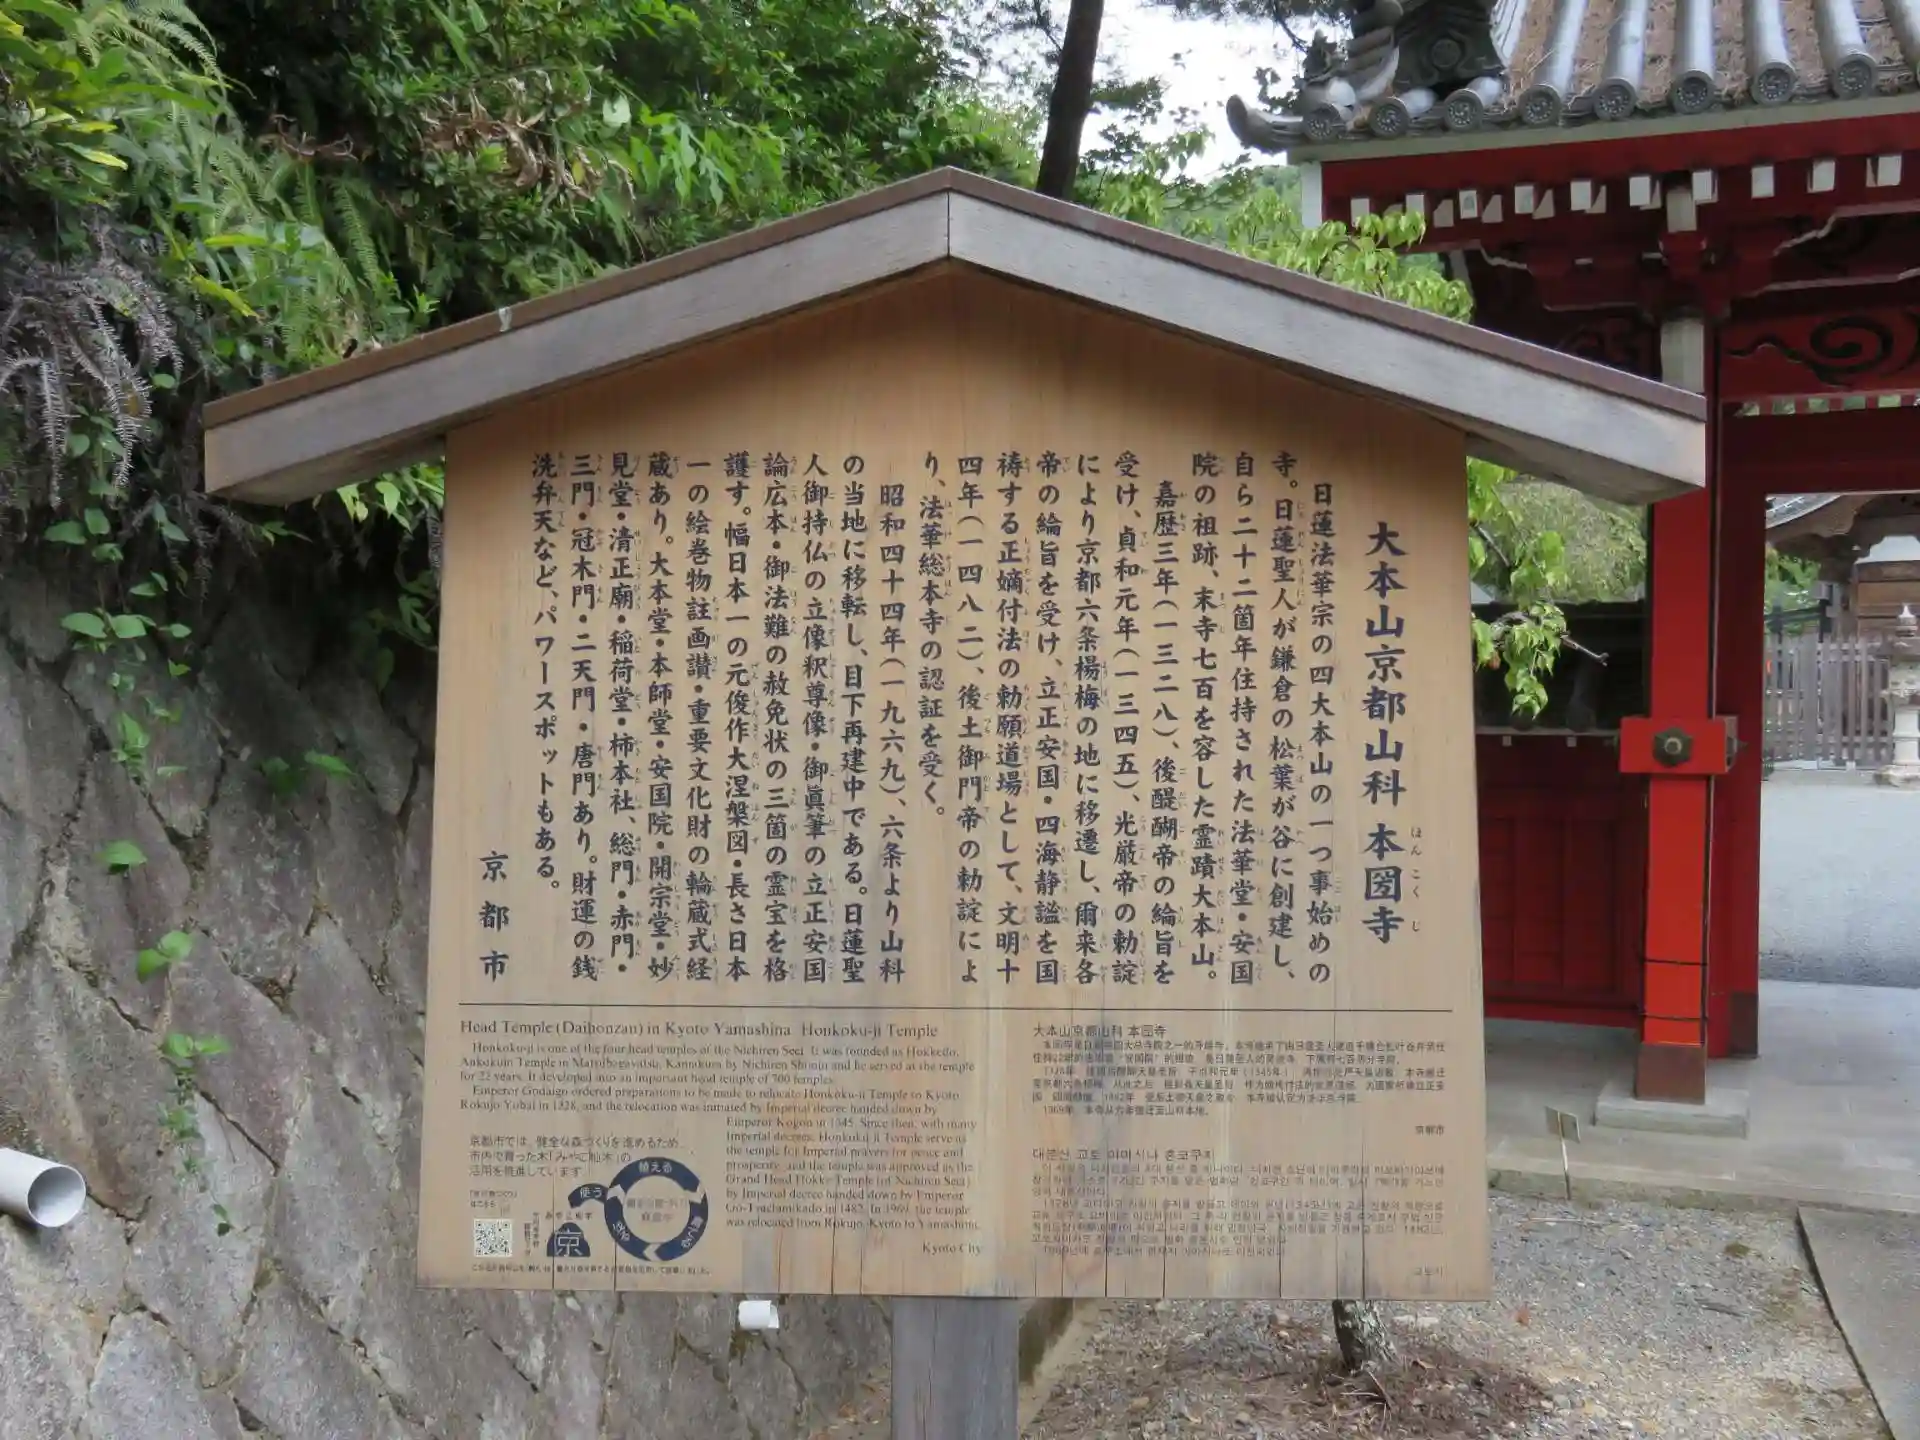 大本山京都山科 本圀寺
ほんこくじ
日蓮法華宗の四大本山の一つ事始めの
寺。日蓮聖人が鎌倉の松葉が谷に創建し、
自ら二十二箇年住持された法華堂・安国
院の祖跡、末寺七百を容した霊蹟大本山。
嘉歴三年(一三二八)、後醍醐帝の綸旨を
受け、貞和元年(一三四五)、光厳帝の勅諚
により京都六条楊梅の地に移遷し、爾来各
帝の綸旨を受け、立正安国・四海静謐を国
祷する正嫡付法の勅願道場として、文明十
四年(一四八二)、後土御門帝の勅諚によ
り、法華総本寺の認証を受く。
昭和四十四年(一九六九)、六条より山科
の当地に移転し、目下再建中である。日蓮聖
人御持仏の立像釈尊像・御眞筆の立正安国
論広本・御法難の赦免状の三箇の霊宝を格
護す。幅日本一の元俊作大涅槃図・長さ日本
一の絵巻物註画讃・重要文化財の輪蔵式経
蔵あり。大本堂・本師堂・安国院・開宗堂・妙
見堂・清正廟・稲荷堂・柿本社、総門・赤門・
三門・冠木門・二天門・唐門あり。財運の銭
洗弁天など、パワースポットもある。
京都市
Head Temple (Daihonzan) in Kyoto Yamashina Honkoku-ji Temple
Honkoku-ji is one of the four head temples of the Nichiren Sect. It was founded as Hokkedo,
Ankokuin Temple in Matsubagayatsu, Kamakura by Nichiren Shonin and he served at the temple
for 22 years. It developed into an important head temple of 700 temples.
Emperor Godaigo ordered preparations to be made to relocate Honkoku-ji Temple to Kyoto
Rokujo Yobai in 1328, and the relocation was initiated by Imperial decree handed down by
Emperor Kogon in 1345. Since then, with many
Imperial decrees, Honkoku-ji Temple serve as
the temple for Imperial prayers for peace and
prosperity, and the temple was approved as the
Grand Head Hokke Temple (of Nichiren Sect)
by Imperial decree handed down by Emperor
Go-Tsuchimikado in 1482. In 1969, the temple
was relocated from Rokujo, Kyoto to Yamashina.
Kyoto City
京都市では、健全な森づくりを進めるため、
市内で育った木「みやこ杣木」の
活用を推進しています
植える
使う
京
大本山京都山科 本圀寺
京都市
대본산 교토 야마시나 혼코쿠지
교토시